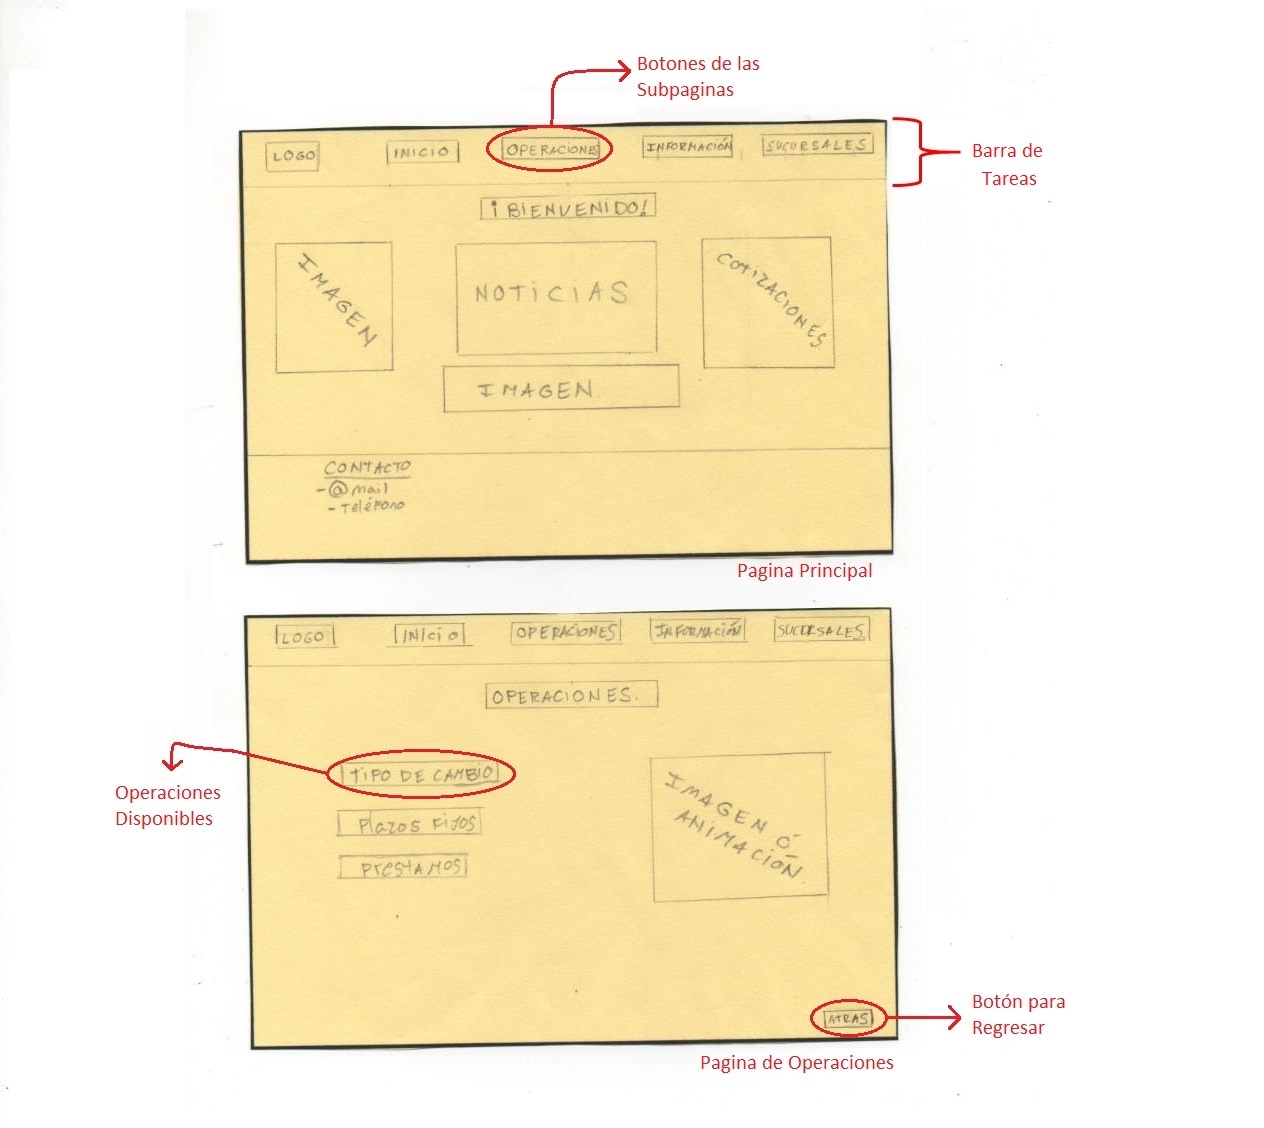 Botones de las
Subpaginas
LOGO INICIO OPERACIONES INFORMACIÓN SUCURSALES
Barra de
Tareas
¡BIENVENIDO!
IMAGEN
NOTICIAS
COTIZACIONES
IMAGEN
CONTACTO
-@mail
-Teléfono
Pagina Principal
LOGO INICIO OPERACIONES INFORMACIÓN SUCURSALES
OPERACIONES.
TIPO DE CAMBIO
Operaciones
Disponibles
Plazos Fijos
Prestamos
IMAGEN Ó
ANIMACIÓN.
ATRAS
Botón para
Regresar
Pagina de Operaciones